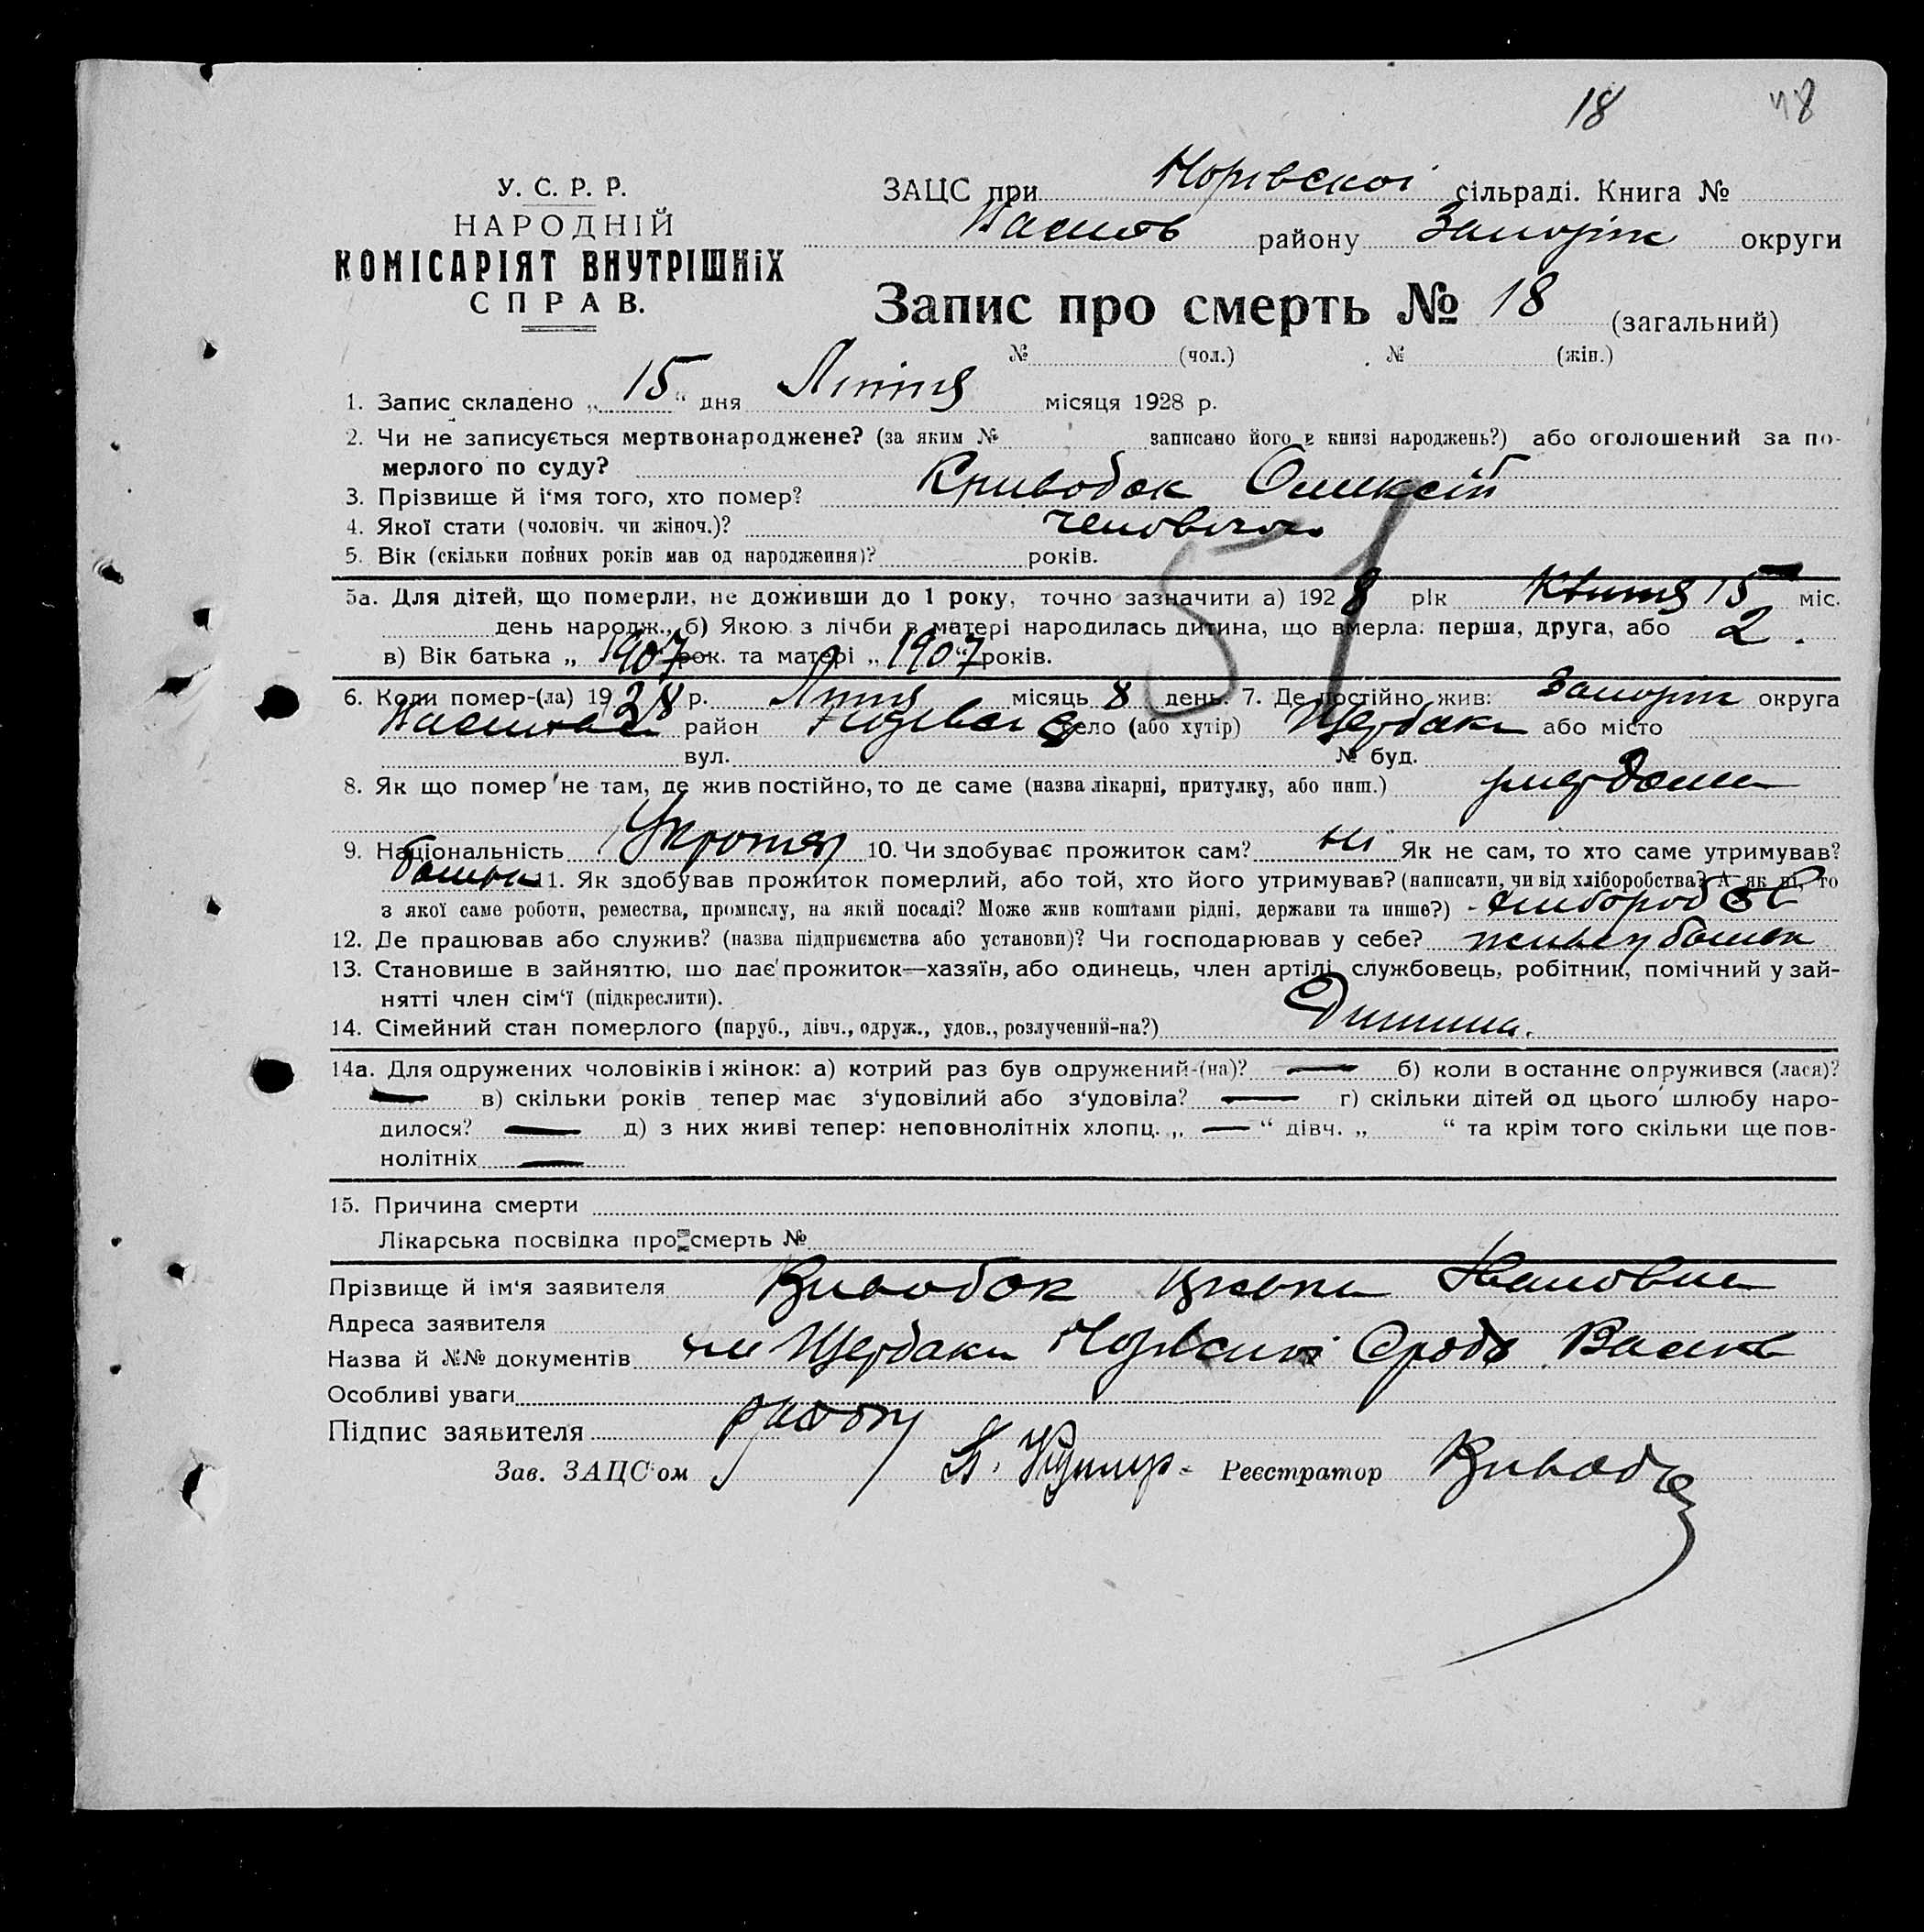 18 48
У. С. Р. Р.
НАРОДНІЙ
КОМІСАРІЯТ ВНУТРІШНІХ
СПРАВ.
ЗАЦС при сільраді. Книга №
району Запоріж округи
Запис про смерть № 18 (загальний)
№ (чол.) № (жін.)
1. Запис складено „ 15 “ дня Липня місяця 1928 р.
2. Чи не записується мертвонароджене? (за яким № записано його в книзі народжень?) або оголошений за по-
мерлого по суду?
3. Прізвище й і'мя того, хто помер? Кривобок Олексій
4. Якої стати (чоловіч. чи жіноч.)?
5. Вік (скільки повних років мав од народження)? років.
51
5а. Для дітей, що померли, не доживши до 1 року, точно зазначити а) 1928 рік Квітня 15 міс.
день народж., б) Якою з лічби в матері народилась дитина, що вмерла: перша, друга, або 2.
в) Вік батька „ 1907 рок. та матері „ 1907 “ років.
6. Коли помер-(ла) 1928 р. Липня місяць 8 день. 7. Де постійно жив: Запоріж округа
район село (або хутір) Щербаки або місто
вул. № буд.
8. Як що помер не там, де жив постійно, то де саме (назва лікарні, притулку, або инш.)
9. Національність 10. Чи здобуває прожиток сам? ні Як не сам, то хто саме утримував?
батьки 11. Як здобував прожиток померлий, або той, хто його утримував? (написати, чи від хліборобства? А як ні, то
з якої саме роботи, ремества, промислу, на якій посаді? Може жив коштами рідні, держави та инше?) -
12. Де працював або служив? (назва підприємства або установи)? Чи господарював у себе?
13. Становище в зайняттю, що дає прожиток—хазяїн, або одинець, член артілі, службовець, робітник, помічний у зай-
нятті член сім'ї (підкреслити).
14. Сімейний стан померлого (паруб., дівч., одруж., удов., розлучений-на?) Дитина.
14а. Для одружених чоловіків і жінок: а) котрий раз був одружений-(на)? — б) коли востаннє одружився (лася)?
— в) скільки років тепер має з'удовілий або з'удовіла? — г) скільки дітей од цього шлюбу наро-
дилося? — д) з них живі тепер: неповнолітніх хлопц. „ — “ дівч. „ “ та крім того скільки ще пов-
нолітніх —
15. Причина смерти
Лікарська посвідка про смерть №
Прізвище й ім'я заявителя Кривобок Ивановна
Адреса заявителя
Назва й №№ документів Щербаки
Особливі уваги
Підпис заявителя
Зав. ЗАЦС'ом Реєстратор